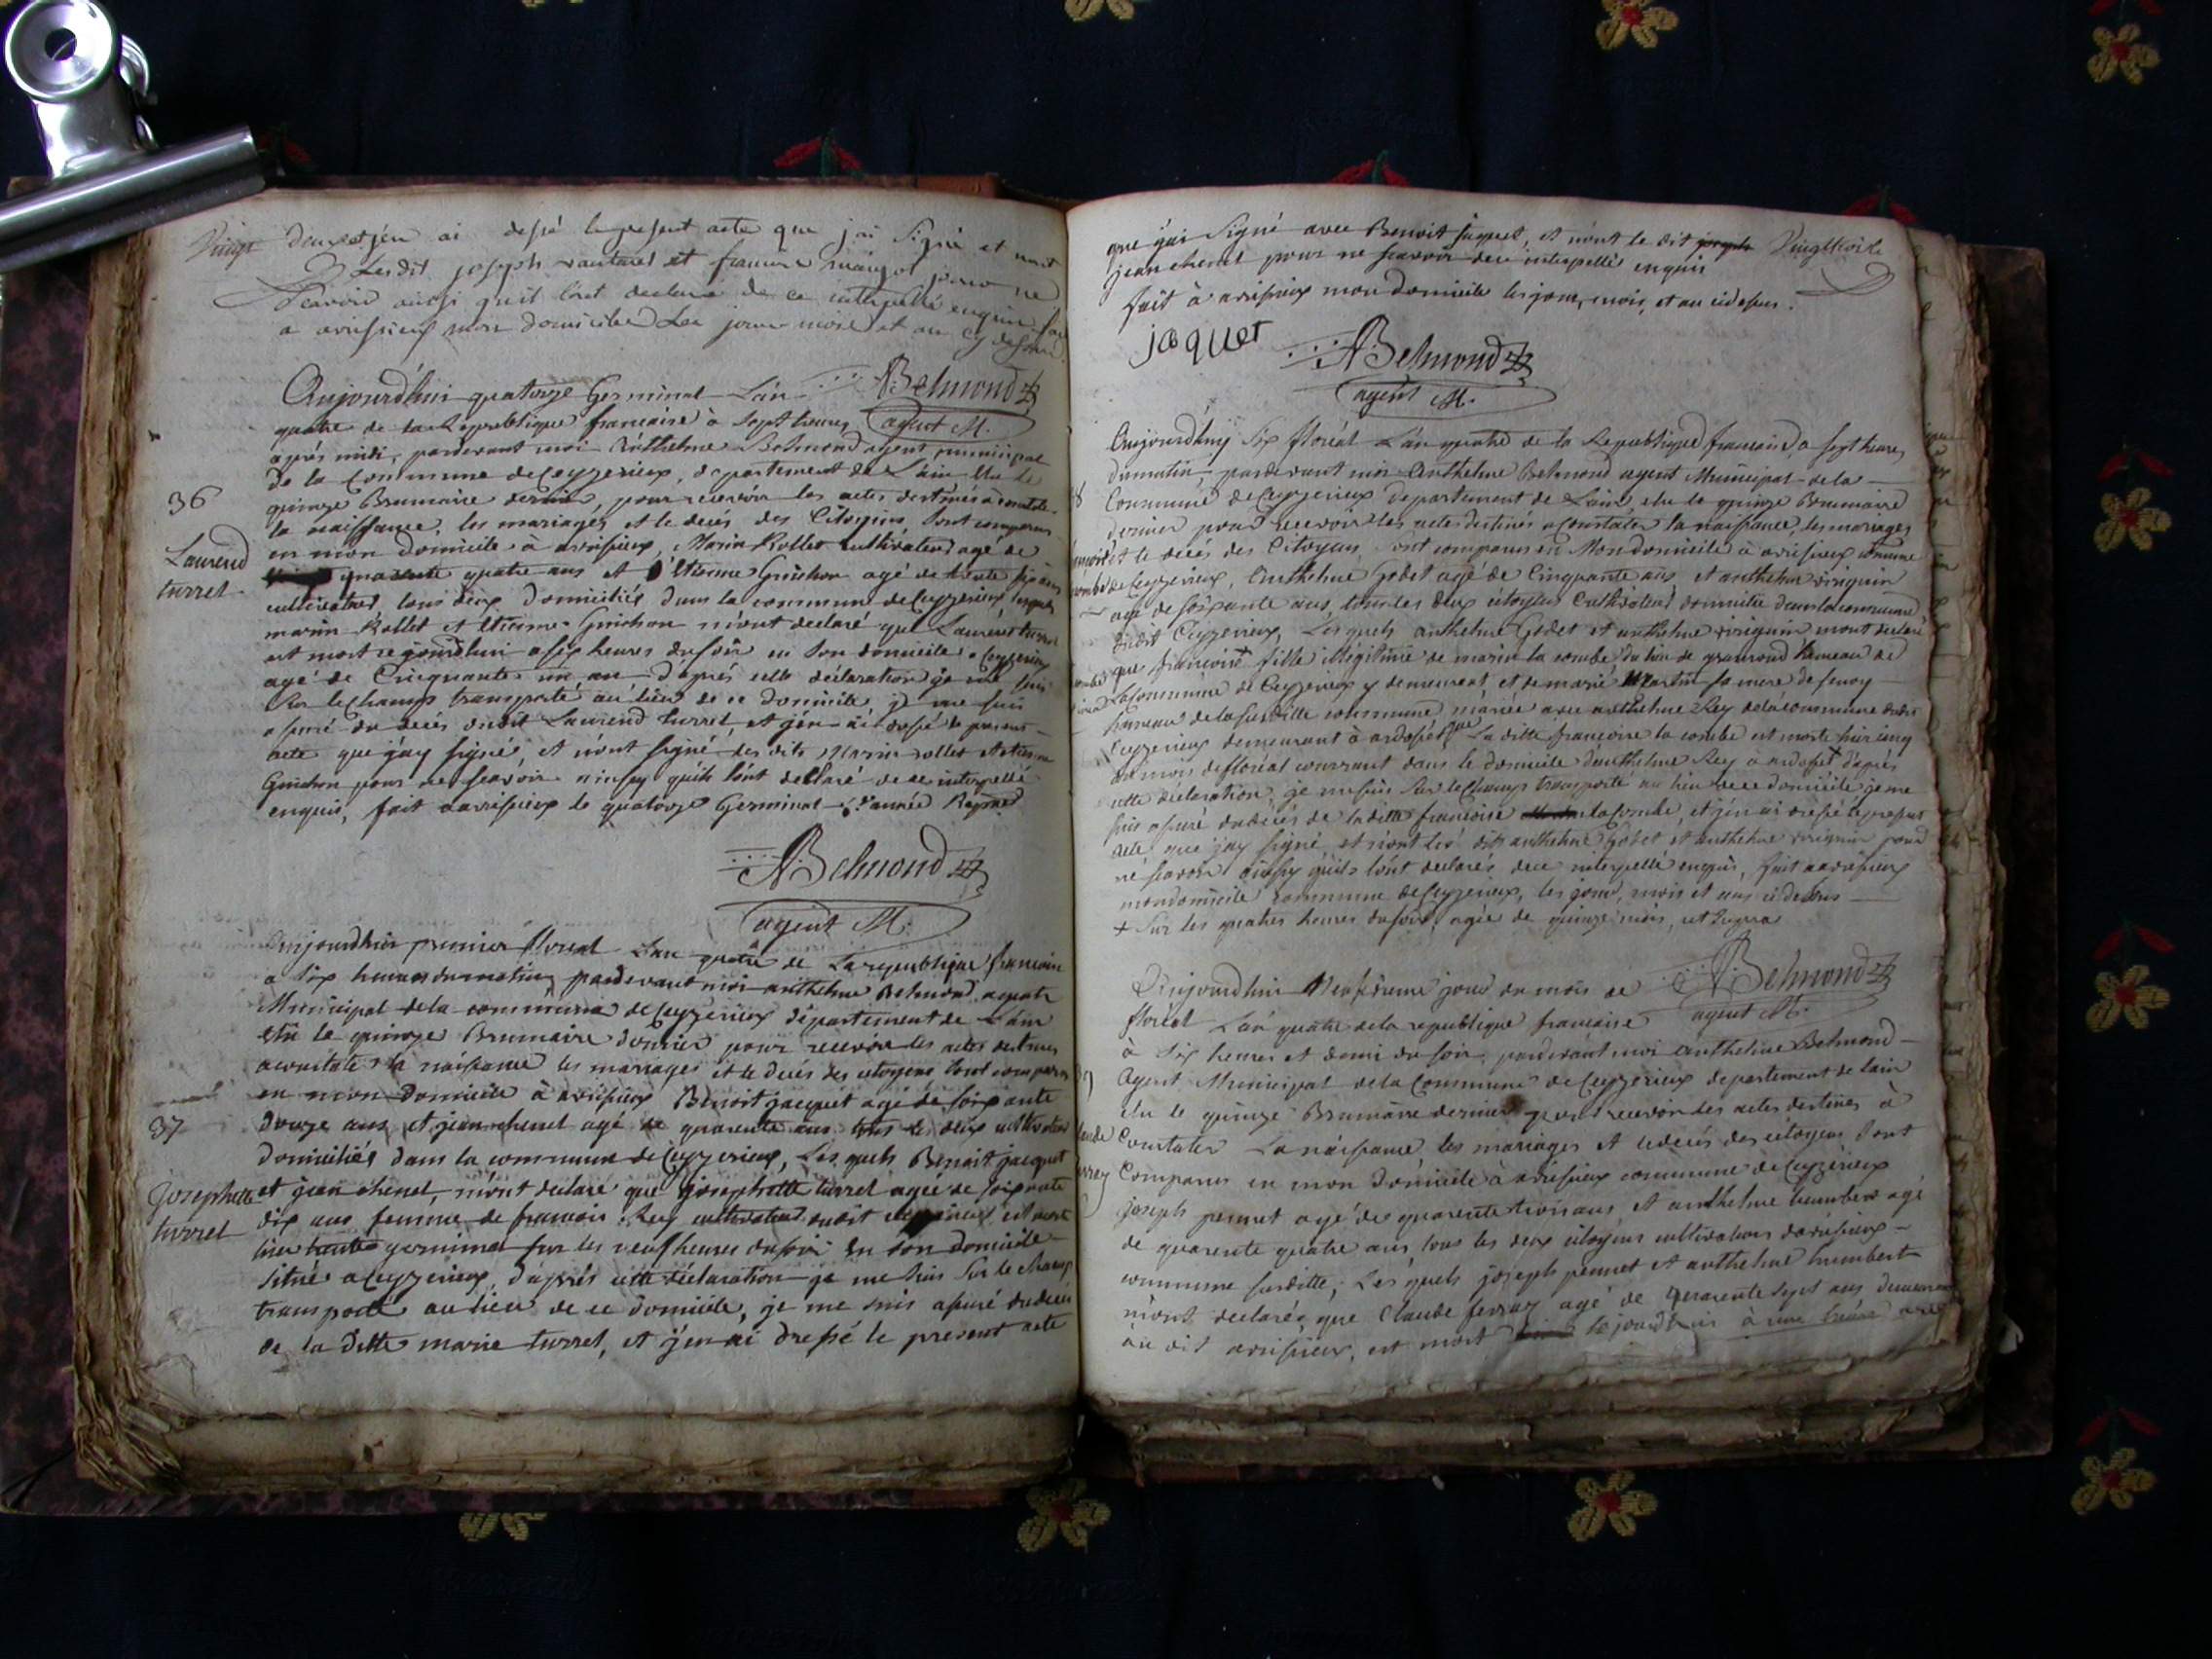 Vingt deux et j'en ai dressé le present acte que j'ai signé et nont
Lesdit joseph et francois mangot pour ne
scavoir ainsi quil l'ont declaré de ce interpellé enquis fait
a avrissieux mon domicile Les jour mois et an cy dessus
ABelmond
agent M.
36
Laurend
turrel
Aujourd'hui quatorze Germinal L'an
quatre de la Republique francaise à sept heures
après midi, pardevant moi Anthelme Belmond agent municipal
de la Commune de Ceyzerieux, departement de L'ain elu le
quinze Brumaire dernier, pour recevoir les actes destinés a constater
la naissance, les mariages et le decés des Citoyens sont comparus
en mon domicile à avrissieux, Marin Rollet cultivateur agé de
quarente quatre ans et Etienne Guichon agé de trente six ans
cultivateur, tous deux domiciliés dans la commune de Ceyzerieux, lesquels
marin Rollet et Etienne Guichon m'ont declaré que Laurent turrel
est mort ce jourdhui a six heures du soir en son domicile a Ceyzerieux
agé de Cinquante un an d'aprés cette déclaration je me suis
sur le champ transporté au lieu de ce domicile, je me suis
assuré du decés dudit Laurend turrel, et j'en ai dressé le present
acte que j'ay signé, et n'ont signé les dits Marin rollet et etienne
Guichon pour ne scavoir ainsy qu'ils l'ont declaré de ce interpellé
enquis, fait a avrissieux le quatorze Germinal 4e année Repne
ABelmond
agent M.
37
Josephette
turrel
Aujourdhui premier floreal L'an quatre de La republique francaise
a six heures du matin pardevant moi anthelme Belmond agent
Municipal de la commune de Ceyzerieux département de L'ain
elu le quinze Brumaire dernier pour recevoir les actes destinés
a constater la naissance les mariages et le decés des citoyens sont comparus
en mon Domicile à avrissieux Benoit jacquet agé de soixante
douze ans et jean chenel agé de quarente ans tous les deux cultivateurs
domiciliés dans la commune de Ceyzerieux, Les quels Benoit jacquet
et jean chenel, m'ont declaré que josephette turrel agée de soixante
dix ans femme de francois Rey cultivateur dudit est morte
hier trente germinal sur les neuf heures du soir en son domicile
situé a Ceyzerieux, d'aprés cette déclaration je me suis sur le champ
transporté au lieu de ce domicile, je me suis assuré du decés
de la ditte marie turrel, et j'en ai dressé le present acte
que j'ai signé avec Benoit jaquet, et n'ont le dit joseph Vingttroisie
jean chenel pour ne scavoir de ce interpellés enquis
fait à avrissieux mon domicile les jour, mois, et an cidessus.
jaquet
ABelmond
agent M.
Aujourd'huy six floréal L'an quatre de la Republique francaise a sept heures
du matin, pardevant moi Anthelme Belmond agent Municipal de la
Commune de Ceyzerieux departement de L'ain elu le quinze Brumaire
dernier pour recevoir les actes destinés a constater la naissance, les mariages
et le decés des Citoyens sont comparus en Mon domicile à avrissieux commune
de Ceyzerieux, Anthelme Godet agé de Cinquante ans et anthelme viriguin
agé de soixante ans, tous les deux citoyens Cultivateurs domicilié dans la commune
dudit Ceyzerieux, Lesquels anthelme Godet et anthelme viriguin m'ont declaré
que francoise fille illégitime de marin la combe du lieu de gramond hameau de
La Commune de Ceyzerieux y demeurant, et de marie Martin sa mere de
hameau de la susditte commune mariée avec anthelme Rey de la commune dudit
Ceyzerieux demeurant à ardosset que La ditte francoise la combe est morte hier cinq
du mois de floréal courrant dans le domicile d'anthelme Rey à ardosset d'aprés
cette déclaration, je me suis sur le Champ transporté au lieu de ce domicile je me
suis assuré du decés de la ditte francoise la Combe, et j'en ai dressé le present
acte que j'ay signé et n'ont les dits anthelme Godet et anthelme viriguin pour
ne scavoir ainsy qu'ils l'ont declarés de ce interpellé enquis, fait a avrissieux
mon domicile commune de Ceyzerieux, les jour, mois et ans cidessus
+ sur les quatres heures du soir, agée de quinze mois,
ABelmond
agent M.
Aujourdhui Neufvieme jour du mois de
floreal L'an quatre de la republique francaise
à six heures et demi du soir, pardevant moi Anthelme Belmond
Agent Municipal de la Commune de Ceyzerieux departement de l'ain
elu le quinze Brumaire dernier pour recevoir les actes destinés à
Constater La naissance les mariages et le decés des citoyens sont
Comparus en mon domicile à avrissieux commune de Ceyzérieux
joseph pennet agé de quarente trois ans et anthelme humbert agé
de quarente quatre ans tous les deux citoyens cultivateurs davrissieux
commune susditte, Lesquels joseph pennet et anthelme humbert
m'ont declarés que Claude ferray agé de quarente sept ans demeurant
au dit avrissieux, est mort ce jourdhuis à une heure